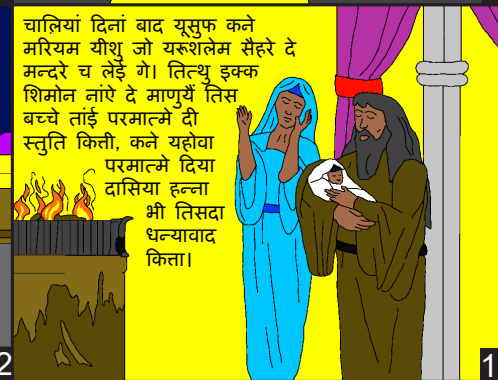 चालियां दिनां बाद यूसुफ कने
मरियम यीशु जो यरूशलेम सैहरे दे
मन्दरे च लेई गे। तित्थु इक्क
शिमोन नांऐ दे माणुयैं तिस
बच्चे तांई परमात्मे दी
स्तुति किती, कने यहोवा
परमात्मे दिया
दासिया हन्ना
भी तिसदा
धन्यावाद
कित्ता।
2
1